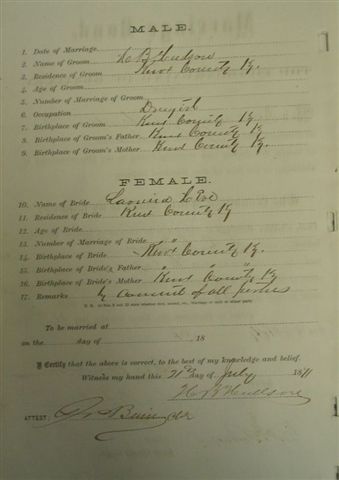 MALE.
1. Date of Marriage
2. Name of Groom H B Hudson
3. Residence of Groom Knox County Ky.
4. Age of Groom
5. Number of Marriage of Groom
6. Occupation Drugist
7. Birthplace of Groom Knox County Ky
8. Birthplace of Groom's Father Knox County Ky
9. Birthplace of Groom's Mother Knox County Ky.
FEMALE.
10. Name of Bride
11. Residence of Bride Knox County Ky
12. Age of Bride
13. Number of Marriage of Bride
14. Birthplace of Bride Knox County Ky.
15. Birthplace of Bride's Father " "
16. Birthplace of Bride's Mother Knox County Ky
17. Remarks By Consent of all parties
To be married at
on the day of 18
I Certify that the above is correct, to the best of my knowledge and belief.
Witness my hand this 21st day of July 1871
H B Hudson
ATTEST: